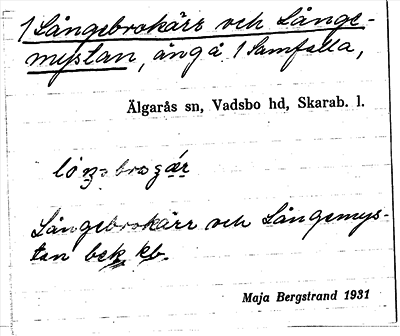 1 Långebrokärr och Långe-
mystan, äng å 1 Samfälla,
Älgarås sn, Vadsbo hd, Skarab. l.
Långebrokärr och Långemys-
tan bek kb.
Maja Bergstrand 1931